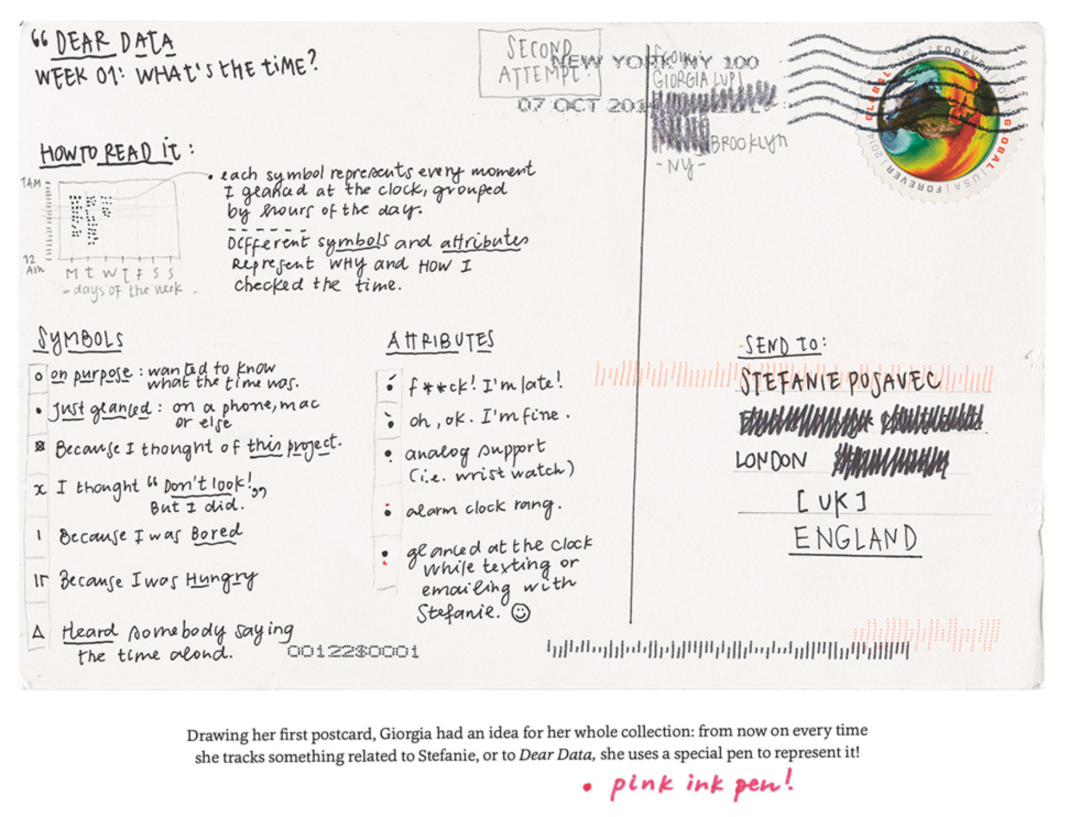 “ DEAR DATA
WEEK 01: WHAT'S THE TIME?
SECOND
ATTEMPT!
NEW YORK NY 100
07 OCT 201
from:
GIORGIA LUPI
BROOKLYN
- NY -
GLOBAL | USA | FOREVER | 2014
GLOBAL
HOW TO READ IT:
12
AM
M T W T F S S
- days of the week -
• each symbol represents every moment
I glanced at the clock, grouped
by hours of the day.
Different symbols and attributes
represent WHY and HOW I
checked the time.
SYMBOLS
on purpose: wanted to know
what the time was.
Just glanced: on a phone, mac
or else
Because I thought of this project.
I thought “Don't look!„
But I did.
Because I was Bored
Because I was Hungry
Heard somebody saying
the time aloud.
ATTRIBUTES
f**ck! I'm late!
oh, ok. I'm fine.
analog support
(i.e. wrist watch)
alarm clock rang.
glanced at the clock
while texting or
emailing with
Stefanie. ☺
SEND TO:
STEFANIE POSAVEC
LONDON
[UK]
ENGLAND
00122$0001
Drawing her first postcard, Giorgia had an idea for her whole collection: from now on every time
she tracks something related to Stefanie, or to Dear Data, she uses a special pen to represent it!
• pink ink pen!